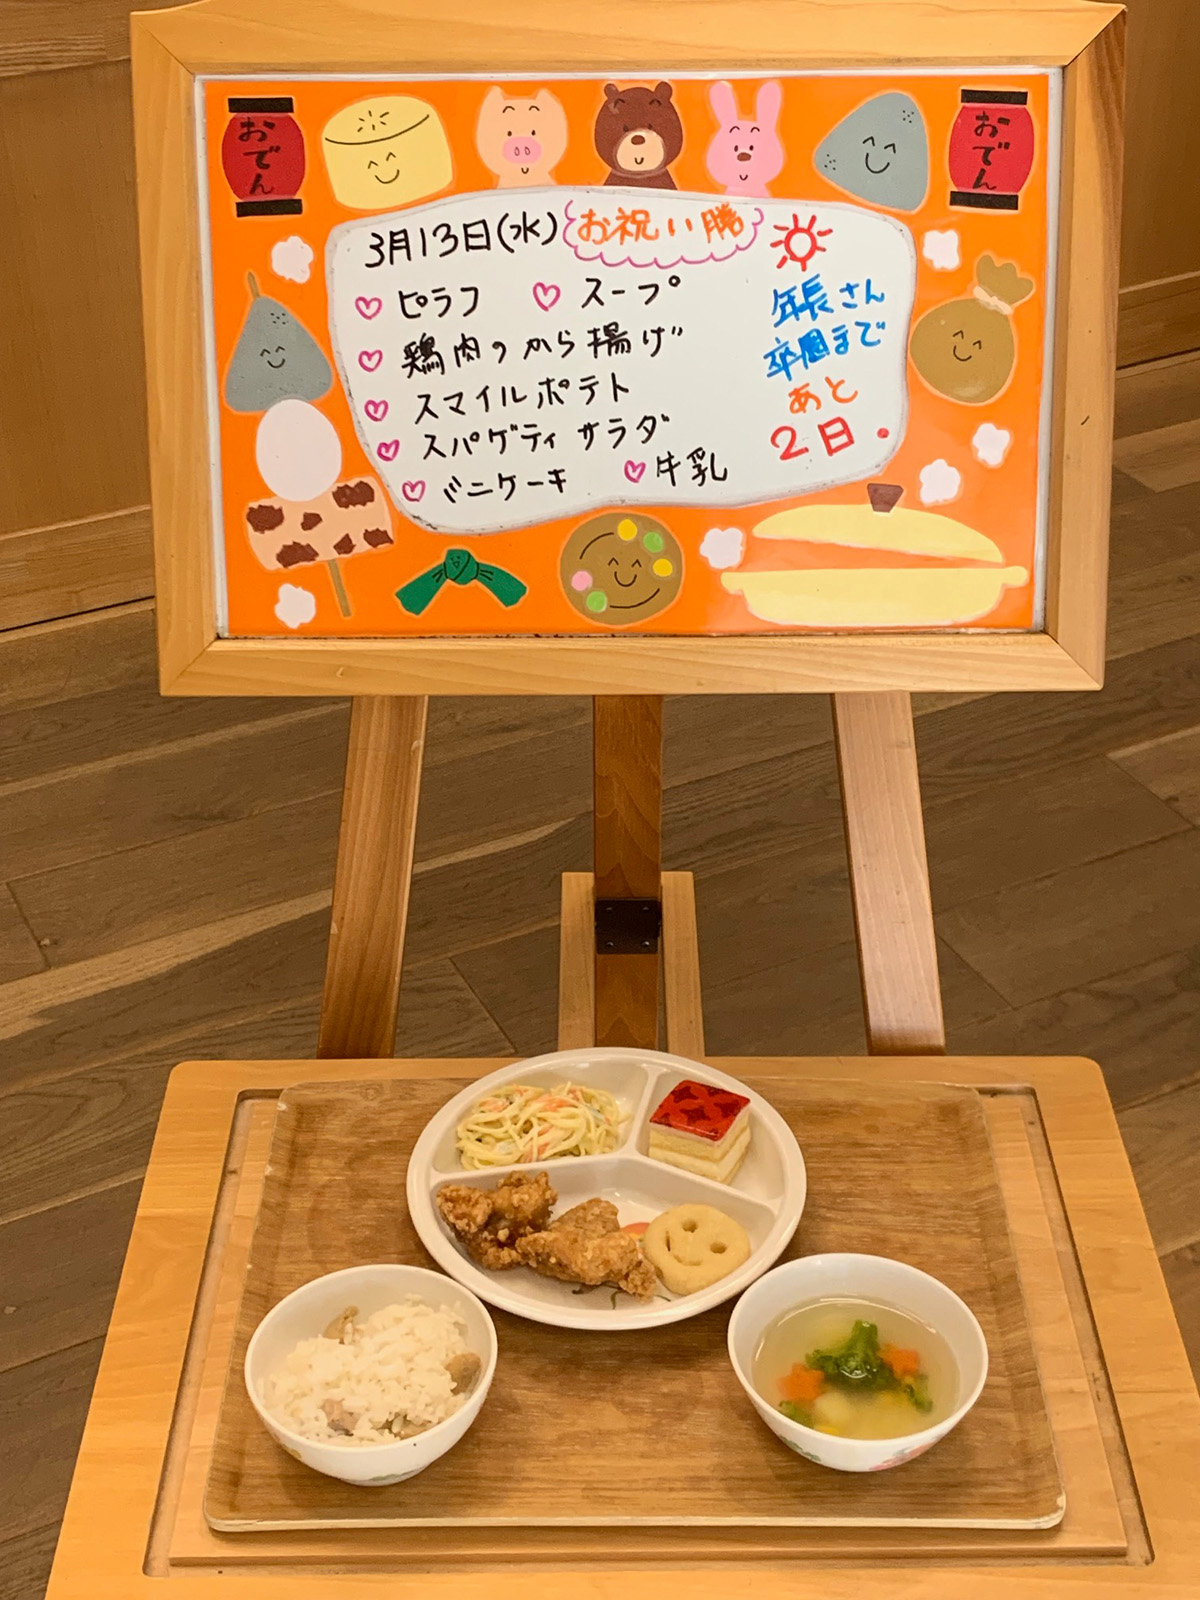 おでん
おでん
3月13日(水) お祝い膳
♡ ピラフ ♡ スープ
♡ 鶏肉のから揚げ
♡ スマイルポテト
♡ スパゲティサラダ
♡ ミニケーキ ♡ 牛乳
年長さん
卒園まで
あと
2日.